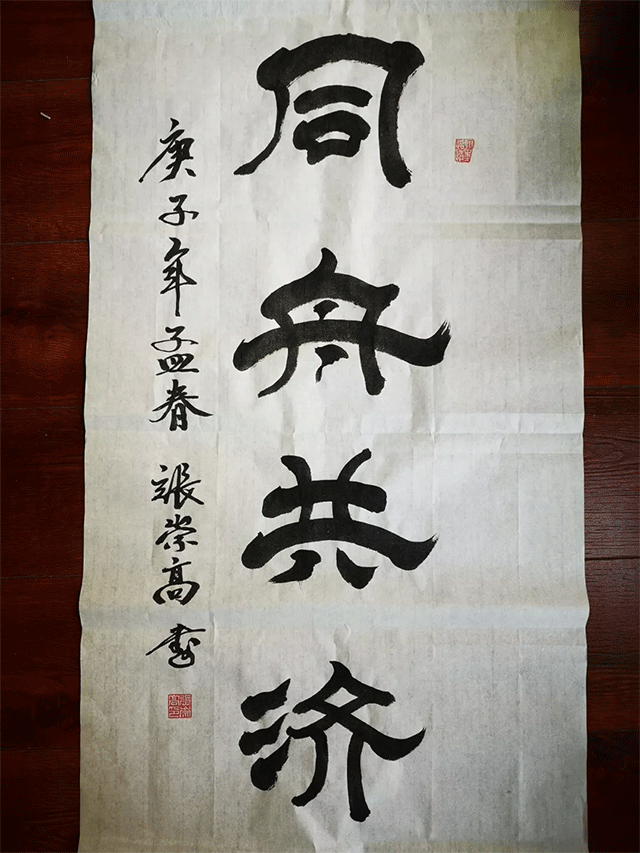 同舟共济
庚子年孟春 张崇高 书